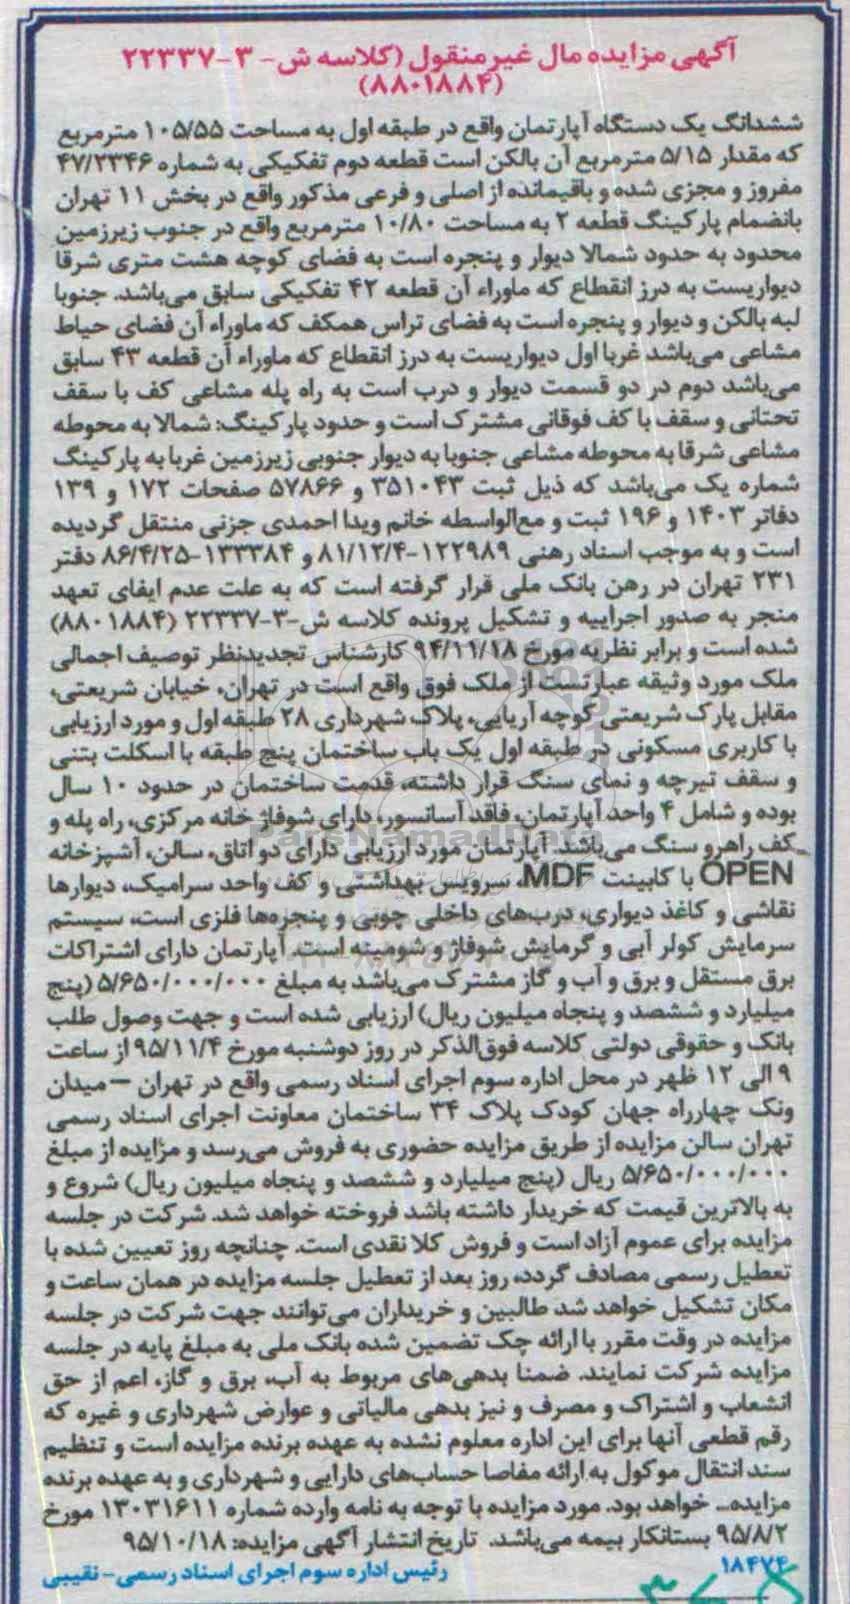 آگهی مزایده مال غیرمنقول (کلاسه ش- ۳-۲۲۳۳۷
(۸۸۰۱۸۸۴)
ششدانگ یک دستگاه آپارتمان واقع در طبقه اول به مساحت ۱۰۵/۵۵ مترمربع
که مقدار ۵/۱۵ مترمربع آن بالکن است قطعه دوم تفکیکی به شماره ۴۷/۲۳۴۶
مفروز و مجزی شده و باقیمانده از اصلی و فرعی مذکور واقع در بخش ۱۱ تهران
بانضمام پارکینگ قطعه ۲ به مساحت ۱۰/۸۰ مترمربع واقع در جنوب زیرزمین
محدود به حدود شمالا دیوار و پنجره است به فضای کوچه هشت متری شرقا
دیواریست به درز انقطاع که ماوراء آن قطعه ۴۲ تفکیکی سابق می‌باشد. جنوبا
لبه بالکن و دیوار و پنجره است به فضای تراس همکف که ماوراء آن فضای حیاط
مشاعی می‌باشد غربا اول دیواریست به درز انقطاع که ماوراء آن قطعه ۴۳ سابق
می‌باشد دوم در دو قسمت دیوار و درب است به راه پله مشاعی کف با سقف
تحتانی و سقف با کف فوقانی مشترک است و حدود پارکینگ: شمالا به محوطه
مشاعی شرقا به محوطه مشاعی جنوبا به دیوار جنوبی زیرزمین غربا به پارکینگ
شماره یک می‌باشد که ذیل ثبت ۳۵۱۰۴۳ و ۵۷۸۶۶ صفحات ۱۷۲ و ۱۳۹
دفاتر ۱۴۰۳ و ۱۹۶ ثبت و مع‌الواسطه خانم ویدا احمدی جزنی منتقل گردیده
است و به موجب اسناد رهنی ۱۲۲۹۸۹-۸۱/۱۲/۴ و ۱۳۳۳۸۴-۸۶/۴/۲۵ دفتر
۲۳۱ تهران در رهن بانک ملی قرار گرفته است که به علت عدم ایفای تعهد
منجر به صدور اجراییه و تشکیل پرونده کلاسه ش-۳-۲۲۳۳۷ (۸۸۰۱۸۸۴)
شده است و برابر نظریه مورخ ۹۴/۱۱/۱۸ کارشناس تجدیدنظر توصیف اجمالی
ملک مورد وثیقه عبارتست از ملک فوق واقع است در تهران، خیابان شریعتی،
مقابل پارک شریعتی کوچه آریایی، پلاک شهرداری ۲۸ طبقه اول و مورد ارزیابی
با کاربری مسکونی در طبقه اول یک باب ساختمان پنج طبقه با اسکلت بتنی
و سقف تیرچه و نمای سنگ قرار داشته، قدمت ساختمان در حدود ۱۰ سال
بوده و شامل ۴ واحد آپارتمان، فاقد آسانسور، دارای شوفاژ خانه مرکزی، راه پله و
کف راهرو سنگ می‌باشد. آپارتمان مورد ارزیابی دارای دو اتاق، سالن، آشپزخانه
OPEN با کابینت MDF، سرویس بهداشتی و کف واحد سرامیک، دیوارها
نقاشی و کاغذ دیواری، درب‌های داخلی چوبی و پنجره‌ها فلزی است، سیستم
سرمایش کولر آبی و گرمایش شوفاژ و شومینه است. آپارتمان دارای اشتراکات
برق مستقل و برق و آب و گاز مشترک می‌باشد به مبلغ ۵/۶۵۰/۰۰۰/۰۰۰ (پنج
میلیارد و ششصد و پنجاه میلیون ریال) ارزیابی شده است و جهت وصول طلب
بانک و حقوقی دولتی کلاسه فوق‌الذکر در روز دوشنبه مورخ ۹۵/۱۱/۴ از ساعت
۹ الی ۱۲ ظهر در محل اداره سوم اجرای اسناد رسمی واقع در تهران – میدان
ونک چهارراه جهان کودک پلاک ۳۴ ساختمان معاونت اجرای اسناد رسمی
تهران سالن مزایده از طریق مزایده حضوری به فروش می‌رسد و مزایده از مبلغ
۵/۶۵۰/۰۰۰/۰۰۰ ریال (پنج میلیارد و ششصد و پنجاه میلیون ریال) شروع و
به بالاترین قیمت که خریدار داشته باشد فروخته خواهد شد. شرکت در جلسه
مزایده برای عموم آزاد است و فروش کلا نقدی است. چنانچه روز تعیین شده با
تعطیل رسمی مصادف گردد، روز بعد از تعطیل جلسه مزایده در همان ساعت و
مکان تشکیل خواهد شد. طالبین و خریداران می‌توانند جهت شرکت در جلسه
مزایده در وقت مقرر با ارائه چک تضمین شده بانک ملی به مبلغ پایه در جلسه
مزایده شرکت نمایند. ضمنا بدهی‌های مربوط به آب، برق و گاز، اعم از حق
انشعاب و اشتراک و مصرف و نیز بدهی مالیاتی و عوارض شهرداری و غیره که
رقم قطعی آنها برای این اداره معلوم نشده به عهده برنده مزایده است و تنظیم
سند انتقال موکول به ارائه مفاصا حساب‌های دارایی و شهرداری و به عهده برنده
مزایده... خواهد بود. مورد مزایده با توجه به نامه وارده شماره ۱۳۰۳۱۶۱۱ مورخ
۹۵/۸/۲ بستانکار بیمه می‌باشد. تاریخ انتشار آگهی مزایده: ۹۵/۱۰/۱۸
۱۸۴۷۴ رئیس اداره سوم اجرای اسناد رسمی- نقیبی
ParsNamadData